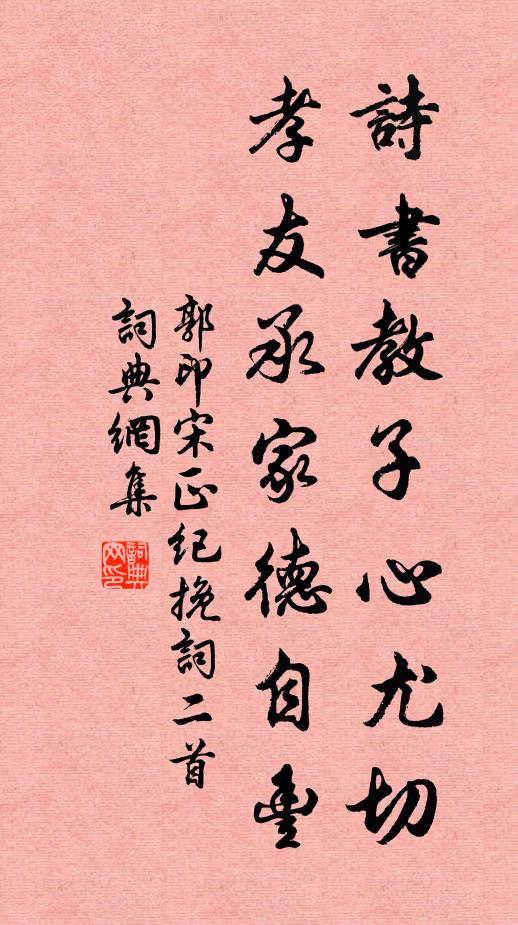 詩書教子心尤切
孝友承家德自豐
郭印宋正紀挽詞二首
詞典網集
詞典
网印